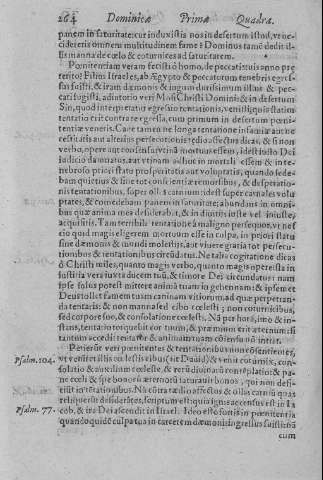 264 Dominicæ Primæ Quadra.
panem in saturitate: cur induxistis nos in desertum istud, ve oc
cideretis omnem multitudinem fame? Dominus tamē dedit il-
lis manna de cœlo & coturnices ad saturitatem.
Pœnitentiam veram fecisti ô homo, de peccatis tuis
teritis? Filius Israelis, ab Ægypto & peccatorum tenebris egres-
sus fuisti, & iram dæmonis & iugum durissimum illius &
cati fugisti, adiutorio veri Mosi Christi Domini & in desertum
Sin, quod interpretatur egressio tentationis, venisti, quia statim
tentatio erit contra te egressa, cum primum in desertum pœni-
tentiæ veneris. Caue tamen ne longa tentatione
aut alterius persecutionis tædio affectus dicas, & si non
verbo, opere aut consensu, vtinā mortuus essem, idest iusto Dei
iudicio damnatus, aut vtinam adhuc in mortali essem & in
priori statu prosperitatis aut voluptatis, quando sede-
bam quietus & sine tot conscientiæ remoribus, &
nis tentationibus, super ollas carnium idest super carnales volu-
ptates, & comedebam panem in saturitate; abundans in omni-
bus quæ anima mea desiderabat, & in diuitiis iuste vel iniuste,
acquisitis. Tam terribili tentatione à maligno persequor, vt
cio quid magis eligerem mortuum esse in culpa, in priori statu
sine dæmonis & mundi molestiis, aut viuere gratia tot persecu-
tionibus & tentationibus circūdatus. Ne talia cogitatione dicas
ô Christi miles, quanto magis verbo, quanto magis opere: lis in
iustitia vera iuxta ducem tuū, & timore Dei circundatus: nam
ipse solus potest mittere animā tuam in gehennam; & ipsem et
Deus tollet famem tuam caninam vitiorum, ad quæ perpetran-
da tentaris: & non manna sed cibo cœlesti; non coturnicibus,
sed corpore suo, & consolatione cœlesti. Nā per horā, imo & in-
stans, tentatio torquebit cor tuum; & præmium erit æternum si
tantum accedit tentatio & animam tuam cōsensu nō intrat.
Perseuerā veri pœnitentes & tentationibus non cōsentientes,
Psalm. 104. vt veniret illis cœlestis cibus (sit Dauid) & venit coturnix,
solatio & auxilium cœleste, & rerū diuinarū contēplatio: & pa-
ne cœli & spe bonorū æternorū saturauit bonos, qui non defe-
cerūt in tentationibus. Nā cōtra tædio affectos & ollas carniū quas
reliquerūt desiderātes, scriptum est: quia ignis accensus est in Ia
Psalm. 77. cob, & ira Dei ascendit in Israel. Ideo esto fortis in pœnitentia
quando quidē culpa tua in carcerem dæmonis ingressus fuisti nō
cum